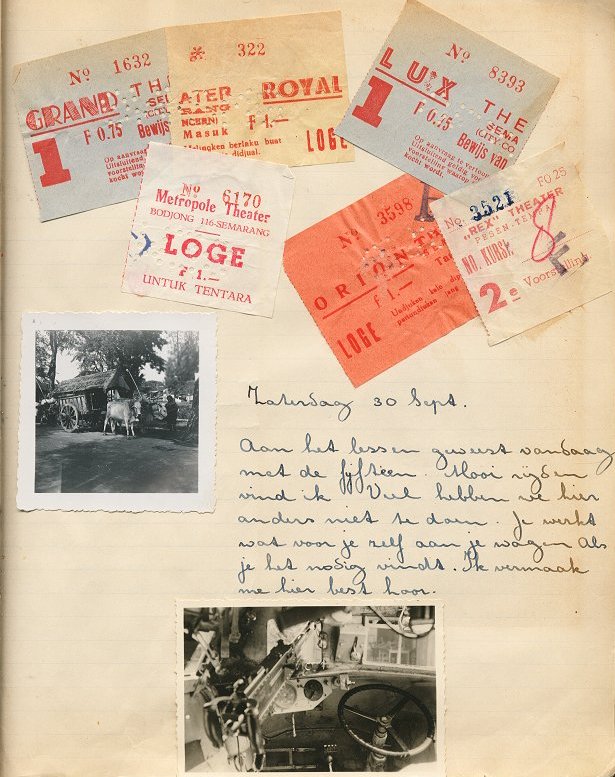 Nº 1632
GRAND THE
SEM
(CITY
F 0.75 Bewijs
1
Op aanvraag
Uitsluitend
voorstelling
kocht wordt.
* 322
ATER ROYAL
RANG
NCERN)
F 1.—
Masuk
LOGE
berlaku buat
didjual.
Nº 8393
LUX THE
SEMA
(CITY CO
F 0.75 Bewijs van
1
Op aanvrage te vertoon
Uitsluitend geldig voor
voorstelling waar
kocht wordt.
Nº 6170
Metropole Theater
BODJONG 116-SEMARANG
LOGE
F 1.—
UNTUK TENTARA
Nº 3598
ORION TH
F 1.—
LOGE
No. 3521 F 0.25
"REX" THEATER
NO. KURSI: 8
2e Voorstelling
Zaterdag 30 Sept.
Aan het lessen geweest vandaag
met de fyfteen. Mooi rijden
vind ik Veel hebben we hier
anders niet te doen. Je werkt
wat voor je zelf aan je wagen als
je het nodig vindt. Ik vermaak
me hier best hoor.